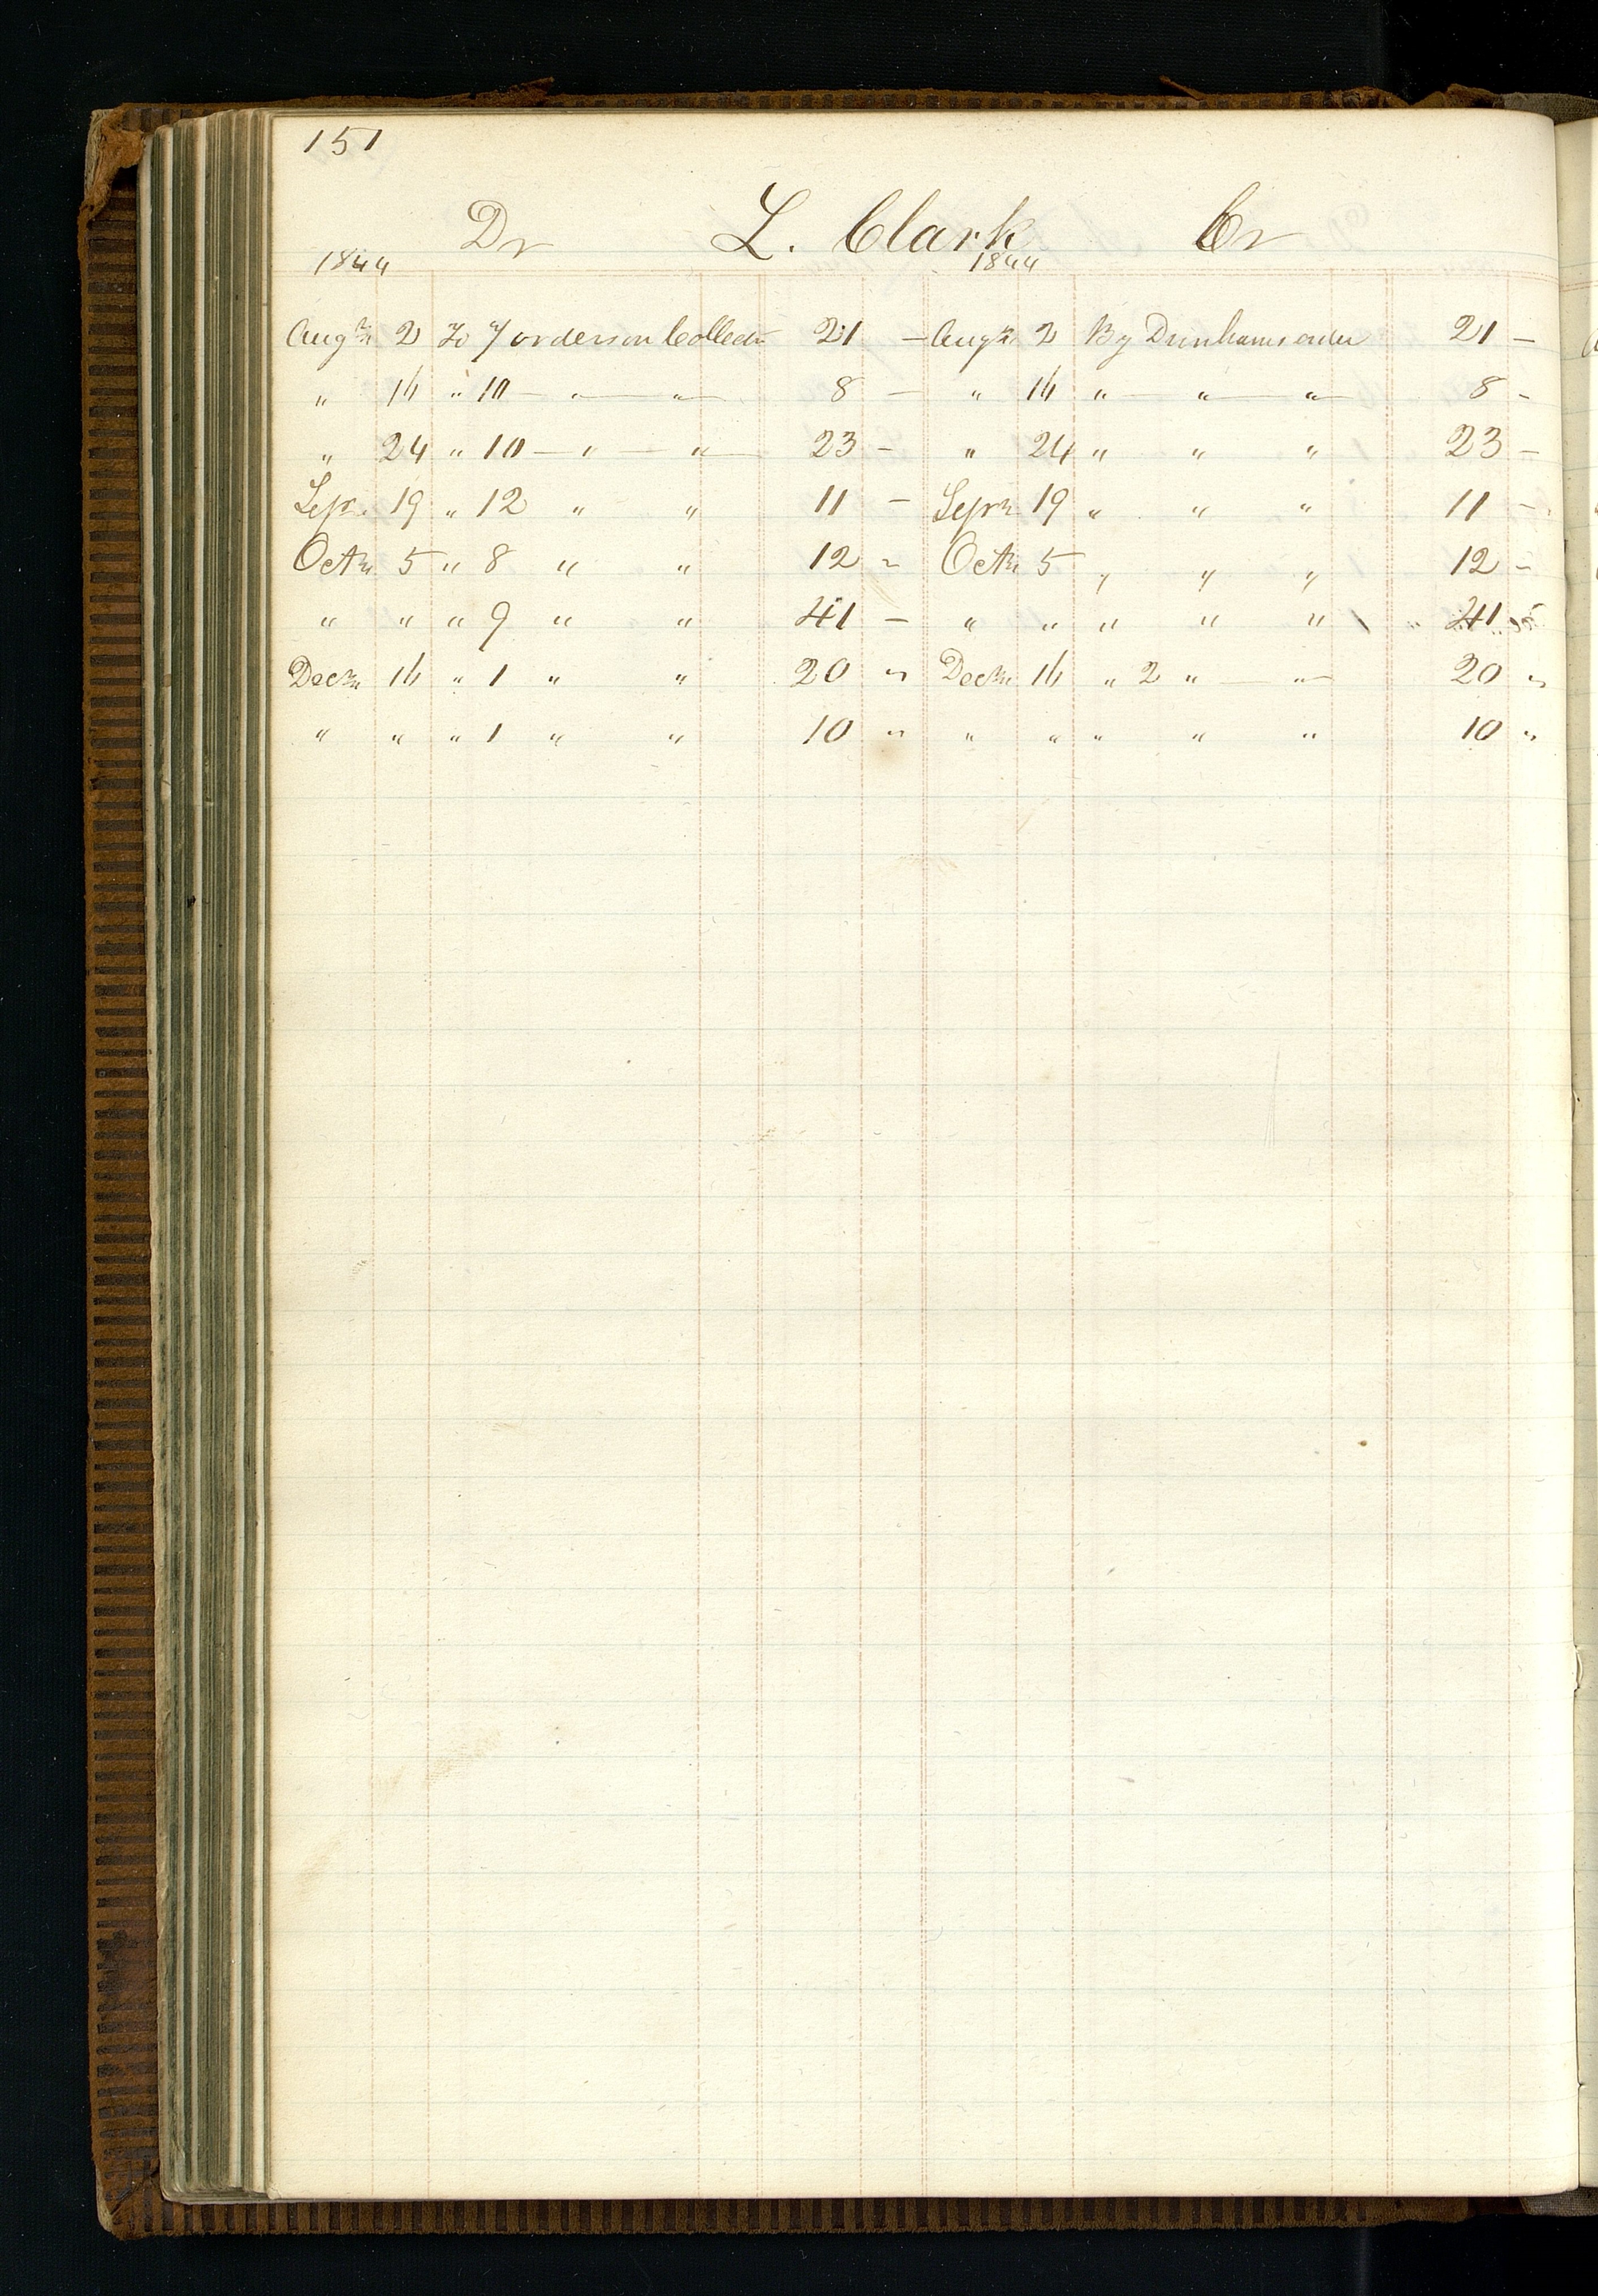 151
Dr L. Clark Cr
1844 1844
Augt 2 To 7 orders on Collectr 21 — Augt 2 By Dunhams order 21 —
" 16 " 10 — " — " — 8 — " 16 " — " — " — 8 -
" 24 " 10 — " — " — 23 — " 24 " " " 23 —
Sepr 19 " 12 " " 11 — Sepr 19 " " " 11 —
Octr 5 " 8 " " 12 - Octr 5 " " " 12 -
" " " 9 " " 41 — " " " " " 41
Decr 16 " 1 " " 20 " Decr 16 " 2 " — " — 20 "
" " " 1 " " 10 " " " " " " 10 "